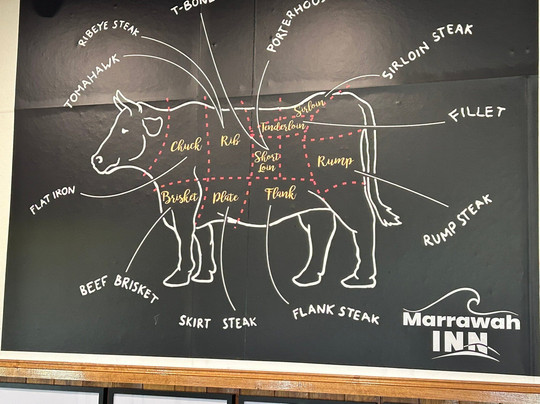 T-BONE
RIBEYE STEAK
TOMAHAWK
PORTERHOUS
SIRLOIN STEAK
FILLET
Sirloin
Tenderloin
Chuck
Rib
Short
Loin
Rump
Brisket
Plate
Flank
FLAT IRON
BEEF BRISKET
SKIRT STEAK
FLANK STEAK
RUMP STEAK
Marrawah
INN